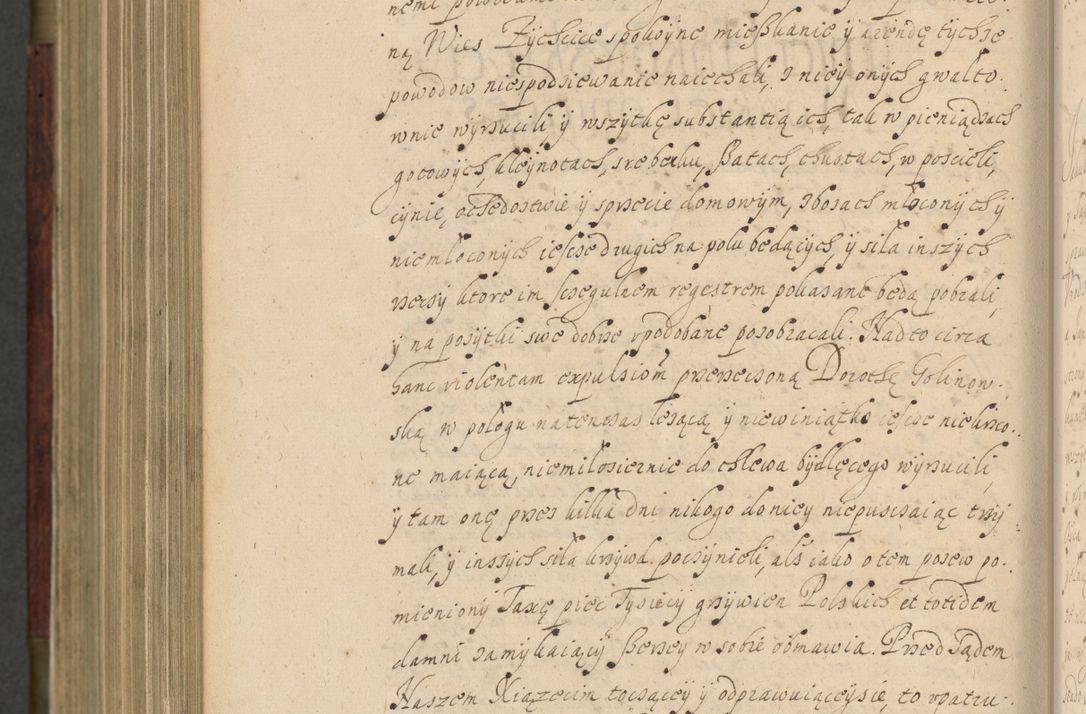 ną Wies Zychcice spokoyne mieszkanie y arendę tychze
powodow niespodziewanie naiechali, z niey onych gwalto-
wnie wyrzucili y wszytkę substantią ich, tak w pieniądzach
gotowych, kleynotach, srebrku, szatach, chustach, w poscieli,
cynie, ochędostwie y sprzecie domowym, zbozach młoconych y
niemłoconych ieszcze drugich na polu będących, y siła inszych
rzeczy ktore im szczegulnem regestrem pokazane będą pobrali,
y na pozytki swe dobrze upodobane poobracali. Nadto circa
hanc violentam expulsiom przerzeczoną Dorothę Golinow-
ską w pologu natenczas lezącą y niewiniątko ieszcze niekrzco-
ne maiącą, niemiłosiernie do chlewa bydlęcego wyrzucili,
y tam onę przez kilka dni nikogo do niey niepuszczaiąc trzy-
mali, y inszych siła krzywd poczynieli, als iako o tem pozew po-
mieniony Taxę pięc Tysięcy grzywien Polskich et totidem
damni zamykaiący szerzey w sobie obmawia. Przed Sądem
Naszem Xiązęcim toczącey y odprawuiąceysie, to upatru-